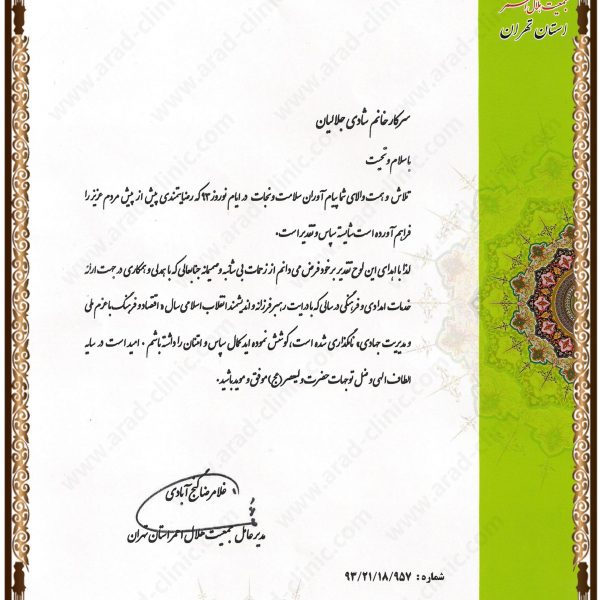 جمعیت هلال احمر
استان تهران
سرکار خانم شادی جلالیان
با سلام و تحیت
تلاش و همت والای شما پیام آوران سلامت و نجات در ایام نوروز ۹۳ که رضایتمندی بیش از پیش مردم عزیز را
فراهم آورده است شایسته سپاس و تقدیر است.
لذا با اهدای این لوح تقدیر بر خود فرض می دانم از زحمات بی شائبه و صمیمانه جنابعالی که با همدلی و همکاری در جهت ارائه
خدمات امدادی و فرهنگی در سالی که با درایت رهبر فرزانه و اندیشمند انقلاب اسلامی سال « اقتصاد و فرهنگ با عزم ملی
و مدیریت جهادی» نامگذاری شده است، کوشش نموده اید کمال سپاس و امتنان را داشته باشم . امید است در سایه
الطاف الهی و فضل توجهات حضرت ولیعصر (عج) موفق و موید باشید.
غلامرضا گنج آبادی
مدیر عامل جمعیت هلال احمر استان تهران
شماره : ۹۳/۲۱/۱۸/۹۵۷
www.arad-clinic.com